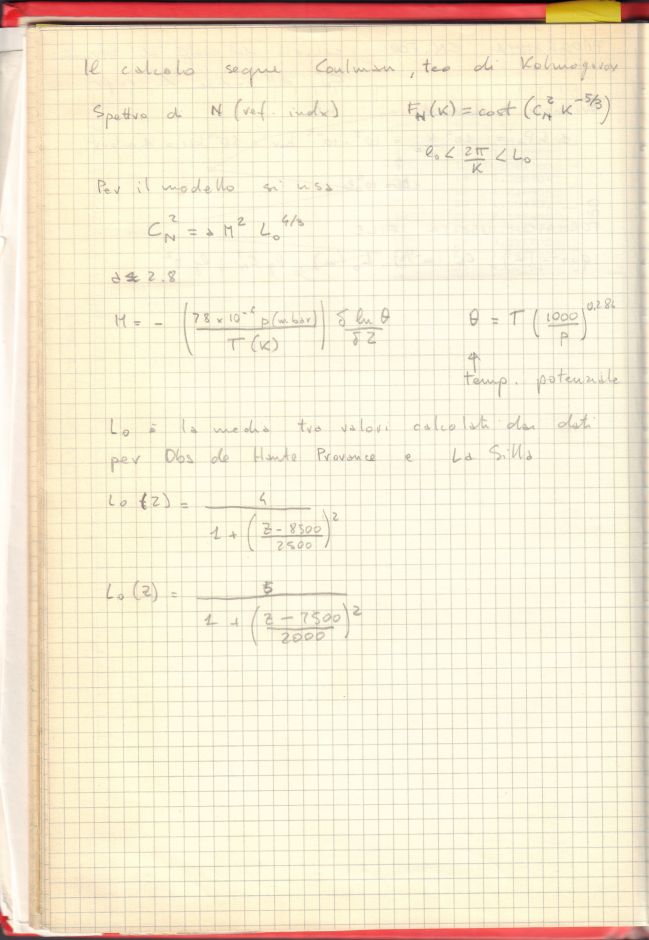 Il calcolo segue Coulman, teo di Kolmogorov
Spettro di N (ref. indx) F_N(K) = cost (C_N^2 K^{-5/3})
l_0 < 2π/K < L_0
Per il modello si usa
C_N^2 = a M^2 L_0^{4/3}
a ≈ 2.8
M = - (78 × 10^{-6} p(mbar) / T(K)) δ ln θ / δZ θ = T (1000/p)^{0.286}
↑
temp. potenziale
L_0 è la media tra valori calcolati dai dati
per Obs de Haute Provance e La Silla
L_0 (Z) = 4 / (1 + ((Z - 8500)/2500)^2)
L_0 (Z) = 5 / (1 + ((Z - 7500)/2000)^2)